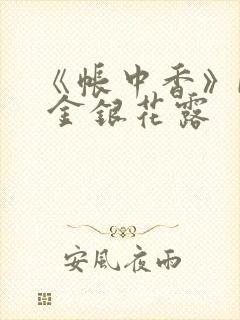 《帐中香》
金银花露
安風夜雨